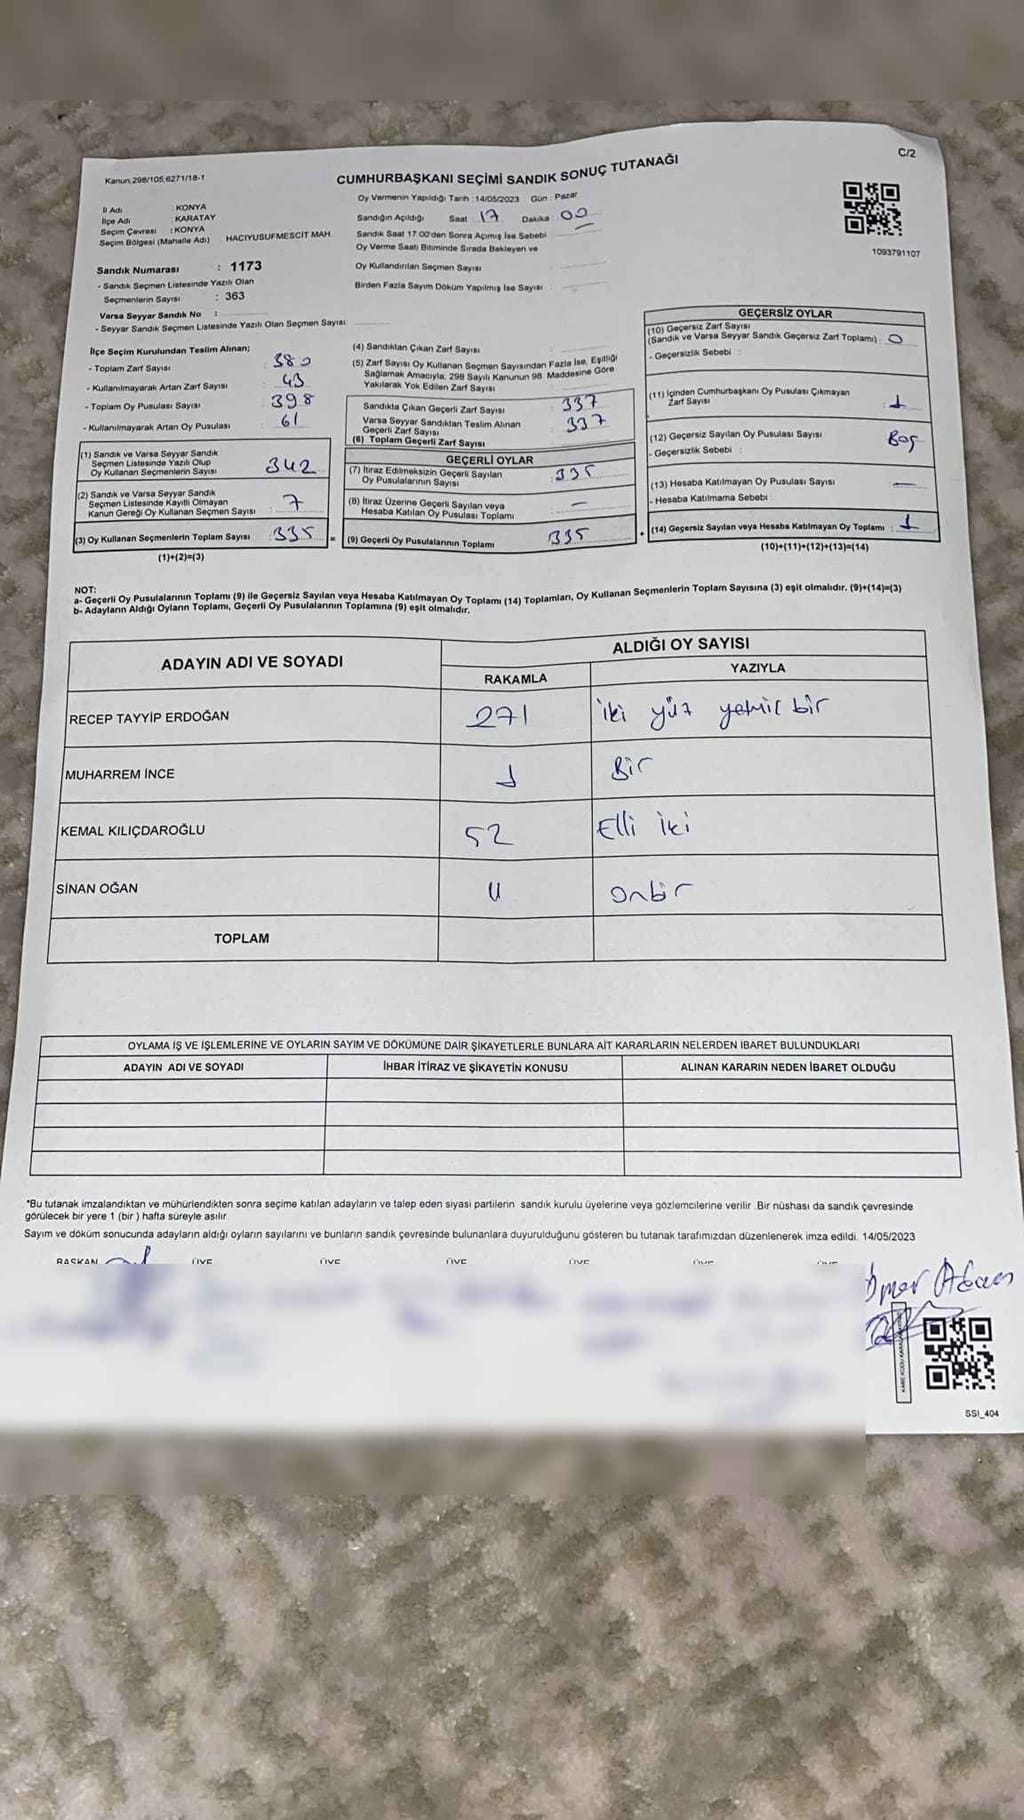 Kanun, 298/105,6271/18-1
C/2
CUMHURBAŞKANI SEÇİMİ SANDIK SONUÇ TUTANAĞI
İl Adı : KONYA
İlçe Adı : KARATAY
Seçim Çevresi : KONYA
Seçim Bölgesi (Mahalle Adı) HACIYUSUFMESCİT MAH.
Sandık Numarası : 1173
- Sandık Seçmen Listesinde Yazılı Olan
Seçmenlerin Sayısı : 363
Varsa Seyyar Sandık No :
- Seyyar Sandık Seçmen Listesinde Yazılı Olan Seçmen Sayısı:
Oy Vermenin Yapıldığı Tarih :14/05/2023 Gün : Pazar
Sandığın Açıldığı Saat 17 Dakika 00
Sandık Saat 17:00'den Sonra Açımış İse Sebebi
Oy Verme Saati Bitiminde Sırada Bekleyen ve
Oy Kullandırılan Seçmen Sayısı
Birden Fazla Sayım Döküm Yapılmış İse Sayısı :
1093791107
İlçe Seçim Kurulundan Teslim Alınan;
- Toplam Zarf Sayısı : 380
- Kullanılmayarak Artan Zarf Sayısı : 43
- Toplam Oy Pusulası Sayısı : 398
- Kullanılmayarak Artan Oy Pusulası : 61
(1) Sandık ve Varsa Seyyar Sandık
Seçmen Listesinde Yazılı Olup
Oy Kullanan Seçmenlerin Sayısı : 342
(2) Sandık ve Varsa Seyyar Sandık
Seçmen Listesinde Kayıtlı Olmayan
Kanun Gereği Oy Kullanan Seçmen Sayısı : 7
(3) Oy Kullanan Seçmenlerin Toplam Sayısı : 335 =
(1)+(2)=(3)
(4) Sandıktan Çıkan Zarf Sayısı :
(5) Zarf Sayısı Oy Kullanan Seçmen Sayısından Fazla İse, Eşitliği
Sağlamak Amacıyla, 298 Sayılı Kanunun 98. Maddesine Göre
Yakılarak Yok Edilen Zarf Sayısı :
Sandıkta Çıkan Geçerli Zarf Sayısı : 337
Varsa Seyyar Sandıktan Teslim Alınan
Geçerli Zarf Sayısı : 337
(6) Toplam Geçerli Zarf Sayısı
GEÇERLİ OYLAR
(7) İtiraz Edilmeksizin Geçerli Sayılan
Oy Pusulasının Sayısı : 335
(8) İtiraz Üzerine Geçerli Sayılan veya
Hesaba Katılan Oy Pusulası Toplamı : —
(9) Geçerli Oy Pusulalarının Toplamı 335 +
GEÇERSİZ OYLAR
(10) Geçersiz Zarf Sayısı
(Sandık ve Varsa Seyyar Sandık Geçersiz Zarf Toplamı) : 0
- Geçersizlik Sebebi :
(11) İçinden Cumhurbaşkanı Oy Pusulası Çıkmayan
Zarf Sayısı : 1
(12) Geçersiz Sayılan Oy Pusulası Sayısı : Boş
- Geçersizlik Sebebi :
(13) Hesaba Katılmayan Oy Pusulası Sayısı : —
- Hesaba Katılmama Sebebi :
(14) Geçersiz Sayılan veya Hesaba Katılmayan Oy Toplamı : 1
(10)+(11)+(12)+(13)=(14)
NOT:
a- Geçerli Oy Pusulalarının Toplamı (9) ile Geçersiz Sayılan veya Hesaba Katılmayan Oy Toplamı (14) Toplamları, Oy Kullanan Seçmenlerin Toplam Sayısına (3) eşit olmalıdır. (9)+(14)=(3)
b- Adayların Aldığı Oyların Toplamı, Geçerli Oy Pusulalarının Toplamına (9) eşit olmalıdır.
ADAYIN ADI VE SOYADI
ALDIĞI OY SAYISI
RAKAMLA YAZIYLA
RECEP TAYYİP ERDOĞAN 271 iki yüz yetmiş bir
MUHARREM İNCE 1 Bir
KEMAL KILIÇDAROĞLU 52 Elli iki
SİNAN OĞAN 11 Onbir
TOPLAM
OYLAMA İŞ VE İŞLEMLERİNE VE OYLARIN SAYIM VE DÖKÜMÜNE DAİR ŞİKAYETLERLE BUNLARA AİT KARARLARIN NELERDEN İBARET BULUNDUKLARI
ADAYIN ADI VE SOYADI İHBAR İTİRAZ VE ŞİKAYETİN KONUSU ALINAN KARARIN NEDEN İBARET OLDUĞU
*Bu tutanak imzalandıktan ve mühürlendikten sonra seçime katılan adayların ve talep eden siyasi partilerin sandık kurulu üyelerine veya gözlemcilerine verilir .Bir nüshası da sandık çevresinde
görülecek bir yere 1 (bir ) hafta süreyle asılır
Sayım ve döküm sonucunda adayların aldığı oyların sayılarını ve bunların sandık çevresinde bulunanlara duyurulduğunu gösteren bu tutanak tarafımızdan düzenlenerek imza edildi. 14/05/2023
BAŞKAN ÜYE ÜYE ÜYE ÜYE ÜYE ÜYE
Ömer
SSI_404